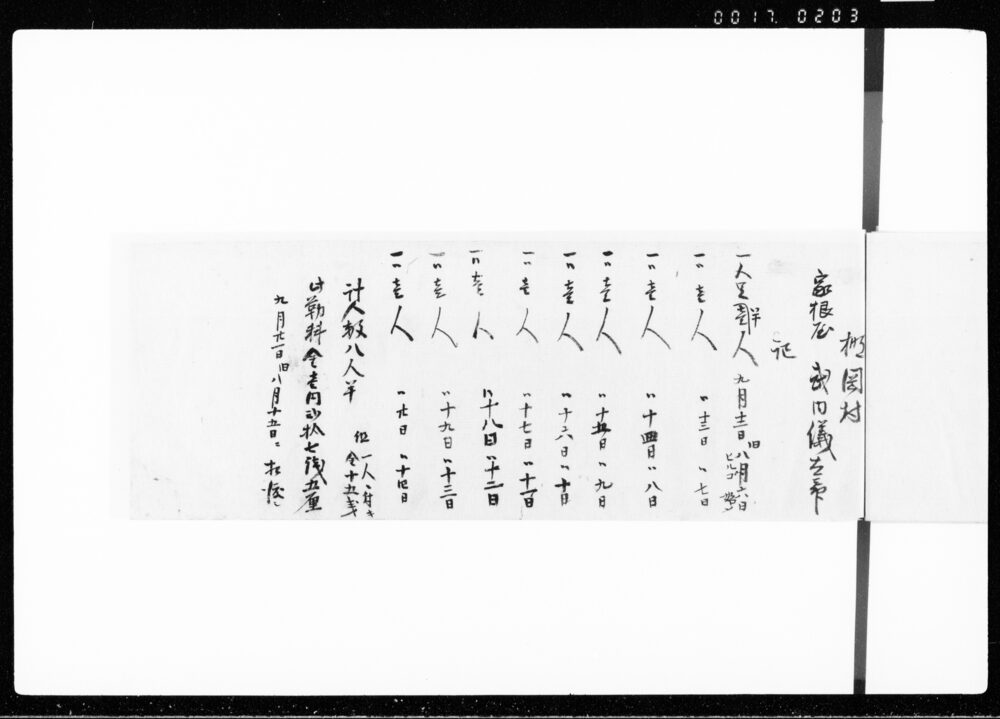 0017 0203
岡村
家根屋 武内儀左
記
一人足半人 九月十二日 旧八月六日 ヒルゴ
一〃壱人 〃十三日 〃七日
一〃壱人 〃十四日 〃八日
一〃壱人 〃十五日 〃九日
一〃壱人 〃十六日 〃十日
一〃壱人 〃十七日 〃十一日
一〃壱人 〃十八日 〃十二日
一〃壱人 〃十九日 〃十三日
一〃壱人 〃廿日 〃十四日
計人数八人半 但一人ニ付キ
金十五戋
此勤料金壱円弐拾七銭五厘
九月廿一日旧八月十五日ニ 相渡ス